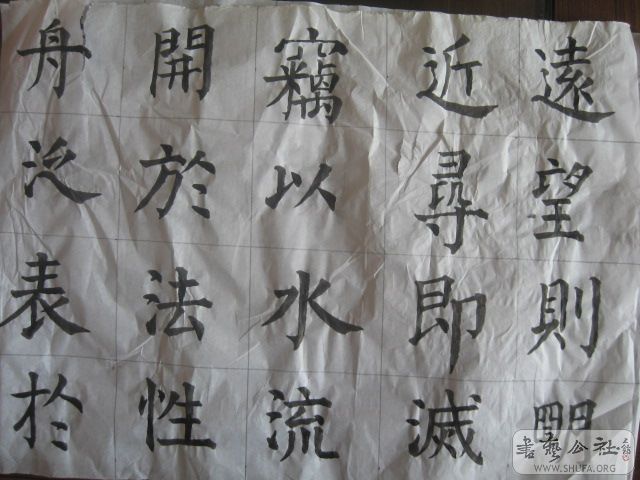 遠望則明
近尋即滅
竊以水流
開於法性
舟泛表於
書藝公社
WWW.SHUFA.ORG